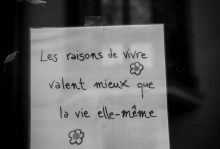 Les raisons de vivre
valent mieux que
la vie elle-même